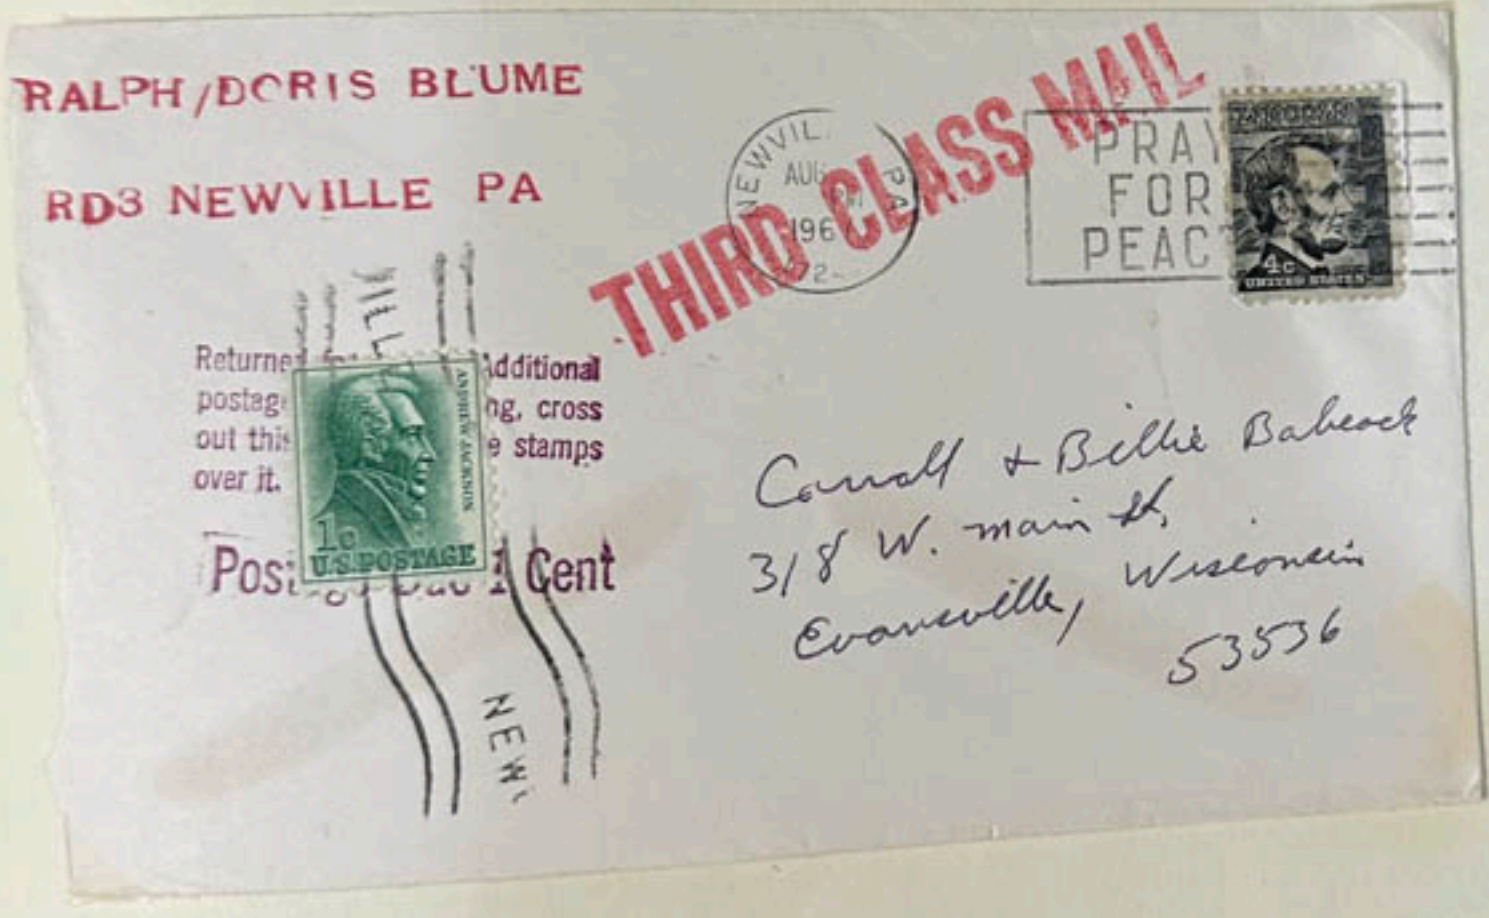 RALPH/DORIS BLUME
RD3 NEWVILLE PA
THIRD CLASS MAIL
NEWVIL PA
AUG
196
PRAY
FOR
PEAC
4c
UNITED STATES
ILL
Returne Additional
postag ng, cross
out this e stamps
over it.
Pos 1 Cent
ANDREW JACKSON
1c
U.S. POSTAGE
NEW
Carroll & Billie Babcock
318 W. Main St,
Evansville, Wisconsin
53536